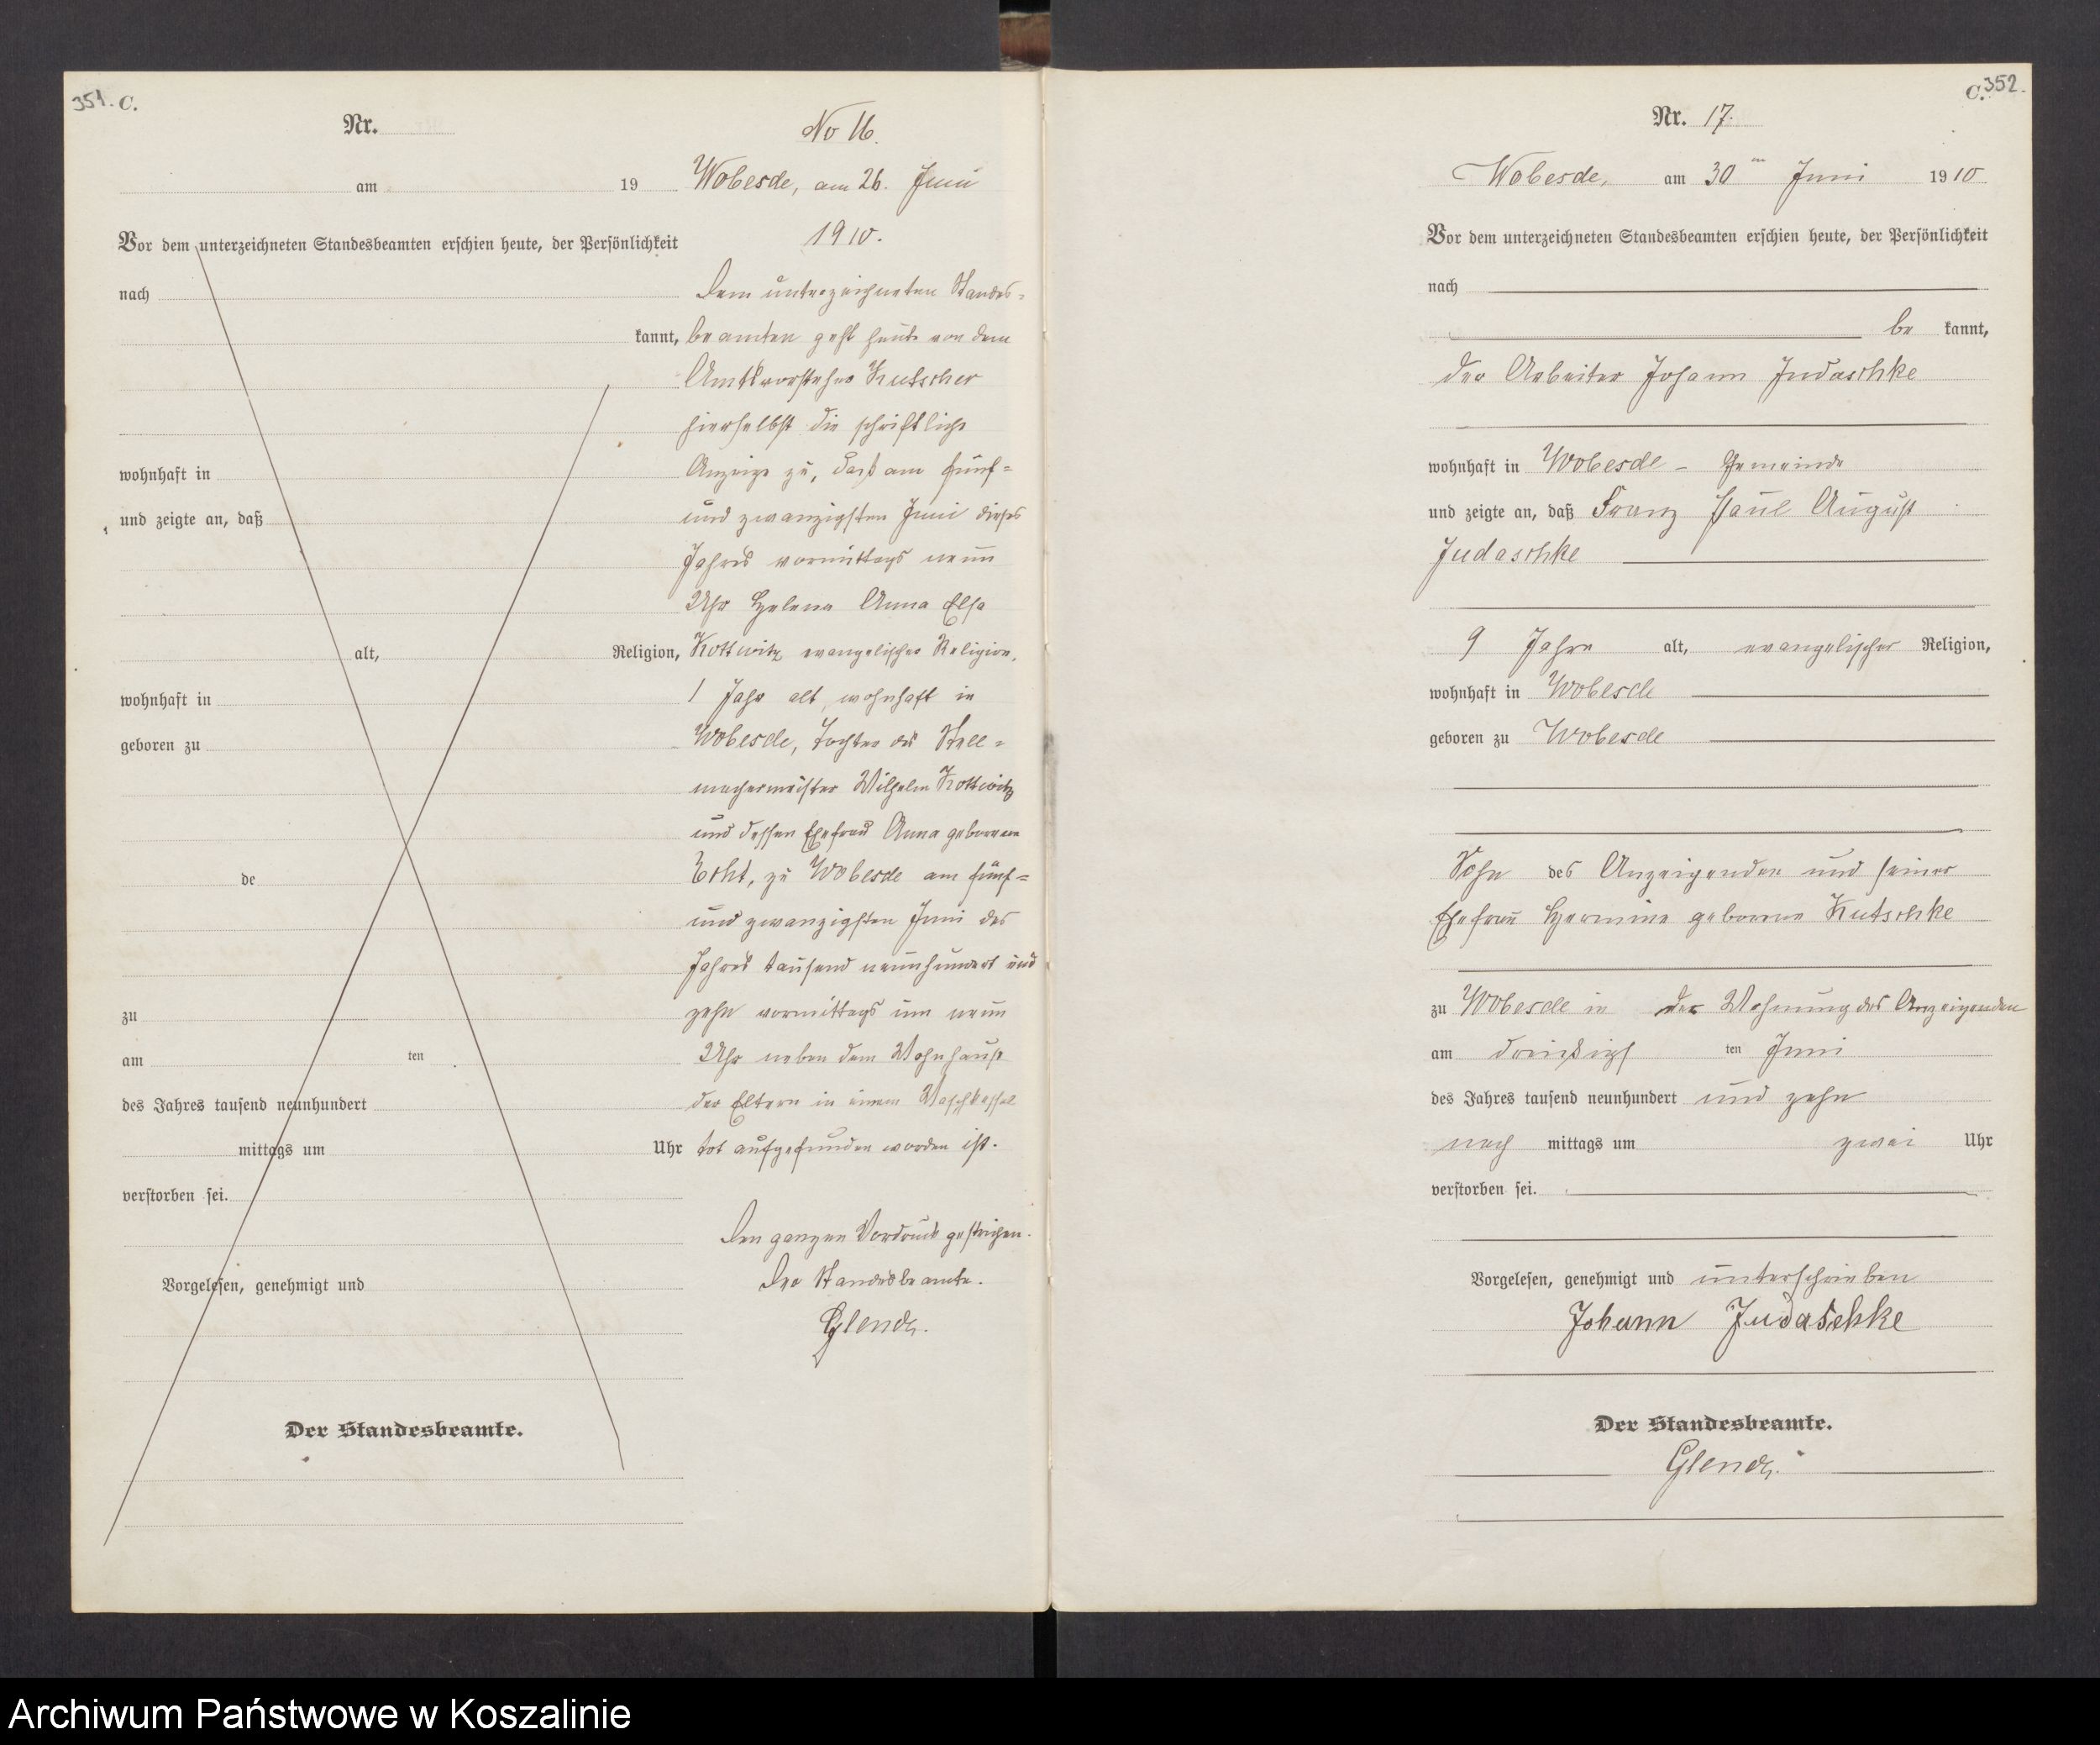 351. C.
Nr.
am 19
Vor dem unterzeichneten Standesbeamten erschien heute, der Persönlichkeit
nach
kannt,
wohnhaft in
und zeigte an, daß
alt, Religion,
wohnhaft in
geboren zu
de
zu
am ten
des Jahres tausend neunhundert
mittags um Uhr
verstorben sei.
Vorgelesen, genehmigt und
Der Standesbeamte.
No 16.
Wobesde, am 26. Juni
1910.
Dem unterzeichneten Standes=
beamten geht heute von dem
Amtsvorsteher Kutscher
hierselbst die schriftliche
Anzeige zu, daß am fünf=
und zwanzigsten Juni dieses
Jahres vormittags neun
Uhr Helena Anna Elsa
Kottwitz evangelischer Religion,
1 Jahr alt, wohnhaft in
Wobesde, Tochter des Stell=
machermeister Wilhelm Kottwitz
und dessen Ehefrau Anna geborene
zu Wobesde am fünf=
und zwanzigsten Juni des
Jahres tausend neunhundert und
zehn vormittags um neun
Uhr neben dem Wohnhause
der Eltern in einem Waschkessel
tot aufgefunden worden ist.
Den ganzen Vordruck gestrichen.
Der Standesbeamte.
C. 352.
Nr. 17.
Wobesde, am 30 ten Juni 1910
Vor dem unterzeichneten Standesbeamten erschien heute, der Persönlichkeit
nach
be kannt,
der Arbeiter Johann Judaschke
wohnhaft in Wobesde - Gemeinde
und zeigte an, daß Franz Paul August
Judaschke
9 Jahre alt, evangelischer Religion,
wohnhaft in Wobesde
geboren zu Wobesde
Sohn des Anzeigenden und seiner
Ehefrau Hermine geborene Kutschke
zu Wobesde in der Wohnung des Anzeigenden
am dreißigs ten Juni
des Jahres tausend neunhundert und zehn
nach mittags um zwei Uhr
verstorben sei.
Vorgelesen, genehmigt und unterschrieben
Johann Judaschke
Der Standesbeamte.
Archiwum Państwowe w Koszalinie